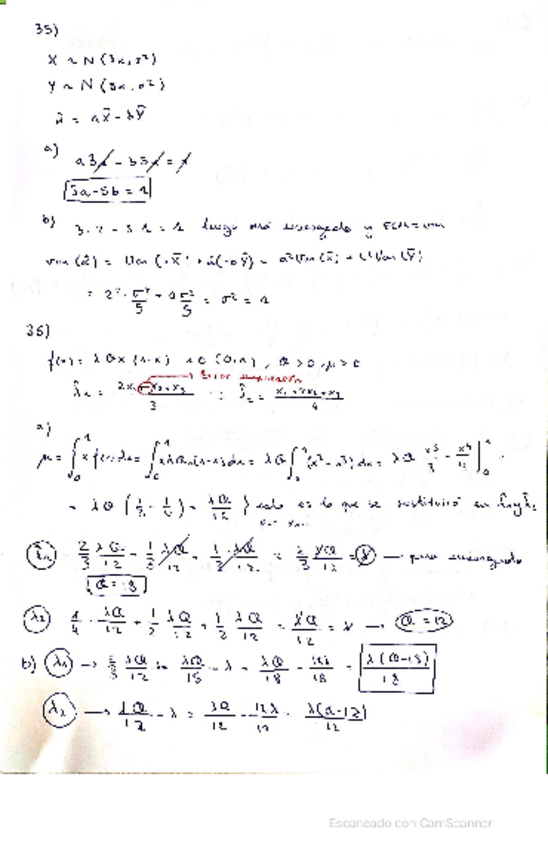 35)
X ~ N (3μ, σ²)
Y ~ N (5μ, σ²)
μ̂ = aX̄ - bȲ
a)
a3μ - b5μ = μ
3a-5b = 1
b) 3·2 - 5·1 = 1 luego será insesgado y ECM = Var
Var(μ̂) = Var(aX̄) + Var(-bȲ) = a²Var(X̄) + b²Var(Ȳ)
= 2²· σ²/5 + 1 σ²/5 = σ² = 1
36)
f(x) = λθx (1-x) x∈(0,1), θ>0, μ>0
Error
λ̂₁ = (2x₁ - x₂ + x₃)/3 λ̂₂ = (x₁ + 2x₂ + x₃)/4
a)
μ = ∫₀¹ x f(x) dx = ∫₀¹ xλθx(1-x) dx = λθ ∫₀¹ (x² - x³) dx = λθ x³/3 - x⁴/4 |₀¹
= λθ (1/3 - 1/4) = λθ/12 } esto es lo que se sustituirá en
λ₁ 2/3 λθ/12 - 1/3 λθ/12 + 1/3 λθ/12 = 2/3 λθ/12 = λ → para insesgado
θ = 18
λ₂ 1/4 · λθ/12 + 1/2 λθ/12 + 1/4 λθ/12 = λθ/12 = λ → θ = 12
b) λ₁ → 2/3 λθ/12 = λθ/18 - λ = λθ/18 - 18λ/18 = λ(θ-18)/18
λ₂ → λθ/12 - λ = λθ/12 - 12λ/12 = λ(θ-12)/12
Escaneado con CamScanner